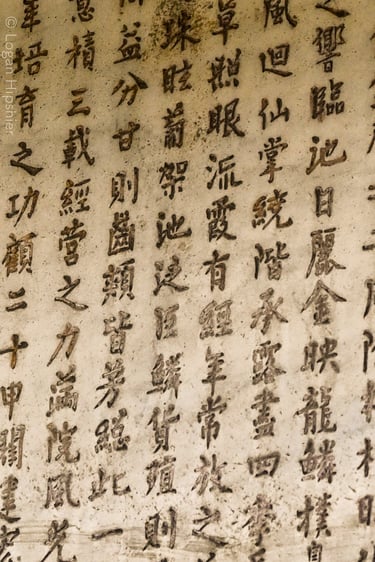 之響臨池日麗金映龍鱗
風迴仙掌繞階承露盡四季
草照眼流霞有經年常放之
珠眩蔔架池泛巨鱗貨殖則
益分甘則齒頰皆芳總此一
積三載經營之力滿院風光
年培育之功顧二十甲閣建
© Logan Hipsher